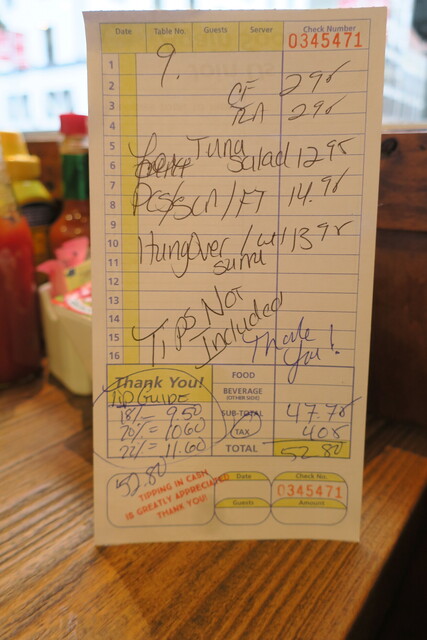 Date Table No. Guests Server Check Number
9. 0345471
1
2
CF 295
3
TEA 295
4
5
Tuna
6 Salad 1295
7
8 Pcs/scr/FT 14.95
9
10 Hungover / w/ 1395
11 Sumu
12
13
14 TIPS NOT
15 Included
16 Thank you!
Thank You! FOOD
TIP GUIDE BEVERAGE
(OTHER SIDE)
18% = 950 SUB-TOTAL 47.75
20% = 1060 TAX 405
22% = 11.60 TOTAL 52.80
52.80
TIPPING IN CASH
IS GREATLY APPRECIATED
THANK YOU!
Date Check No.
0345471
Guests Amount